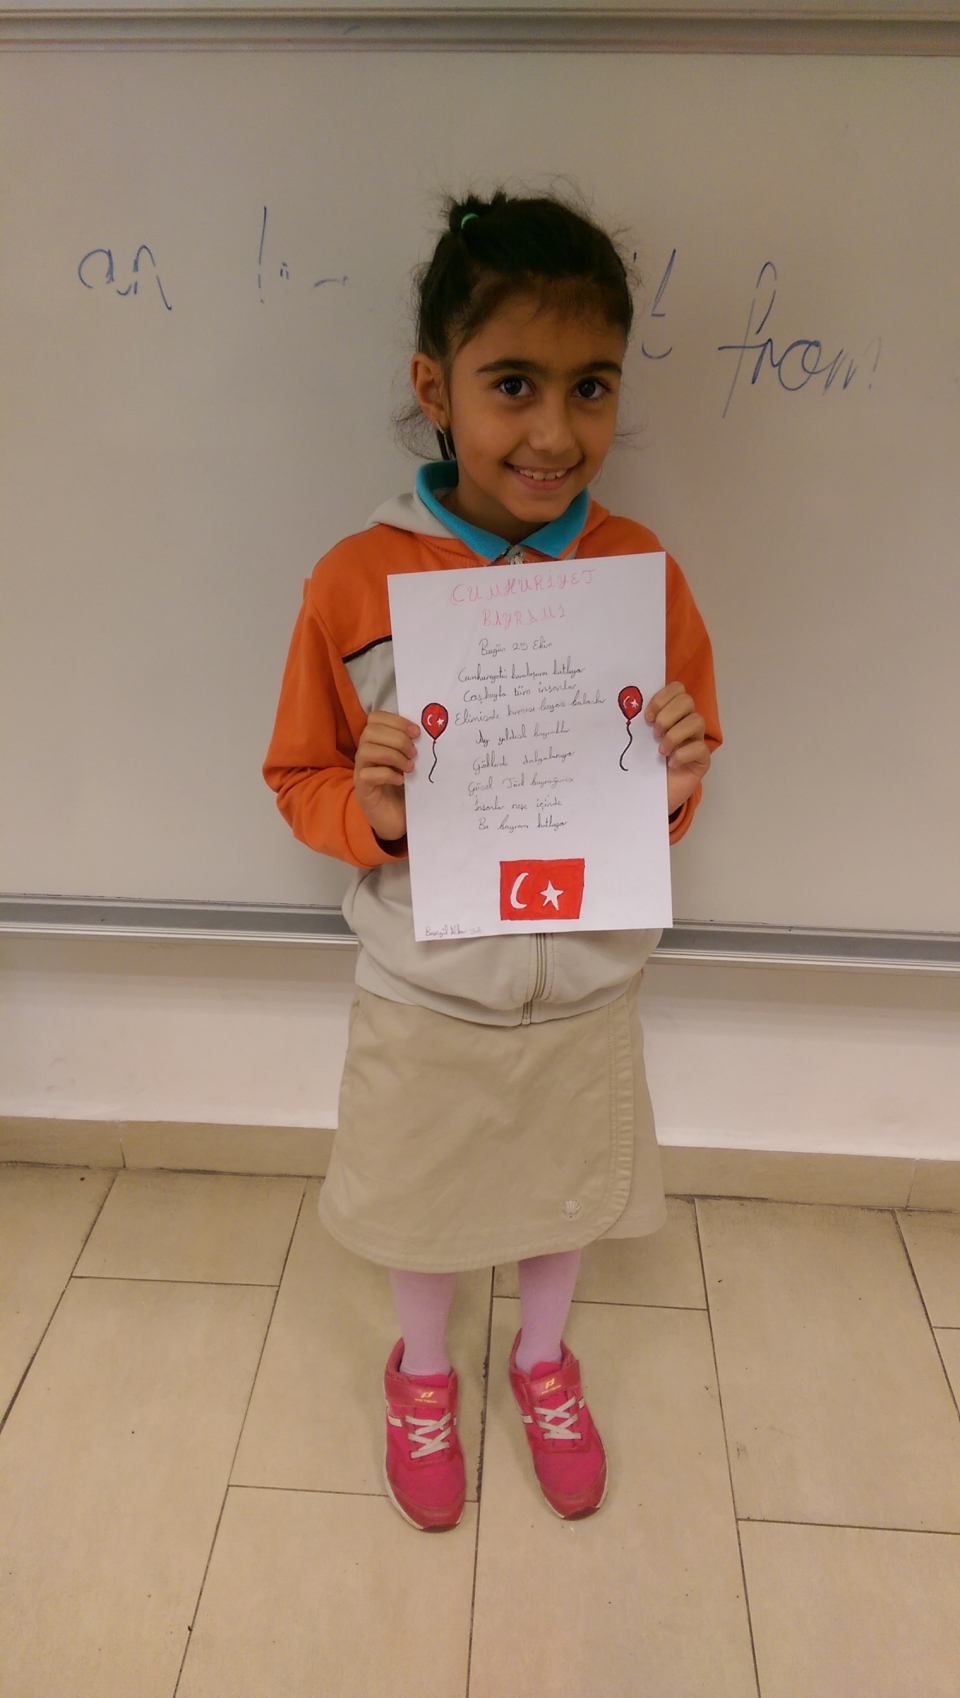 an
from
CUMHURİYET
BAYRAMI
Bugün 29 Ekim
Cumhuriyetin kuruluşunu kutluyor
Coşkuyla tüm insanlar
Elimizde kırmızı beyaz balonlar
Ay yıldızlı bayraklar
Göklerde dalgalanıyor
Güzel Türk bayrağımız
İnsanlar neşe içinde
Bu bayramı kutluyor